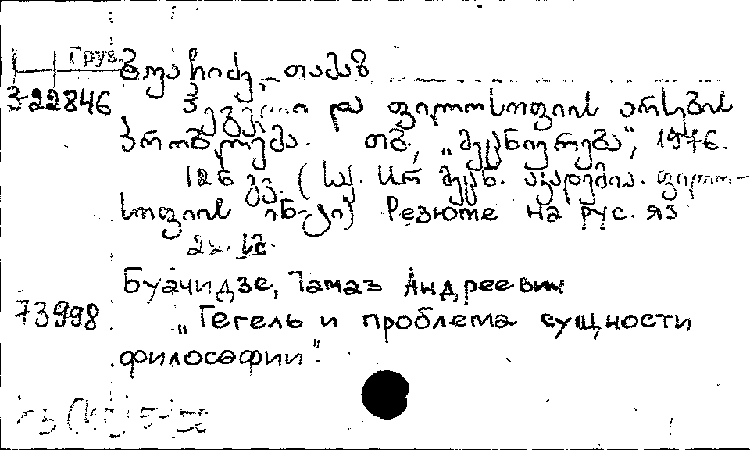 Груз.
ბუაჩიძე, თამაზ
322846 ჰეგელი და ფილოსოფიის არსების
პრობლემა. თბ., „მეცნიერება“, 1976.
126 გვ. (საქ. სსრ მეცნ. აკადემია. ფილო-
სოფიის ინ-ტი) Резюме на рус. яз
Буачидзе, Тамаз Андреевич
73998 „Гегель и проблема сущности
философии".